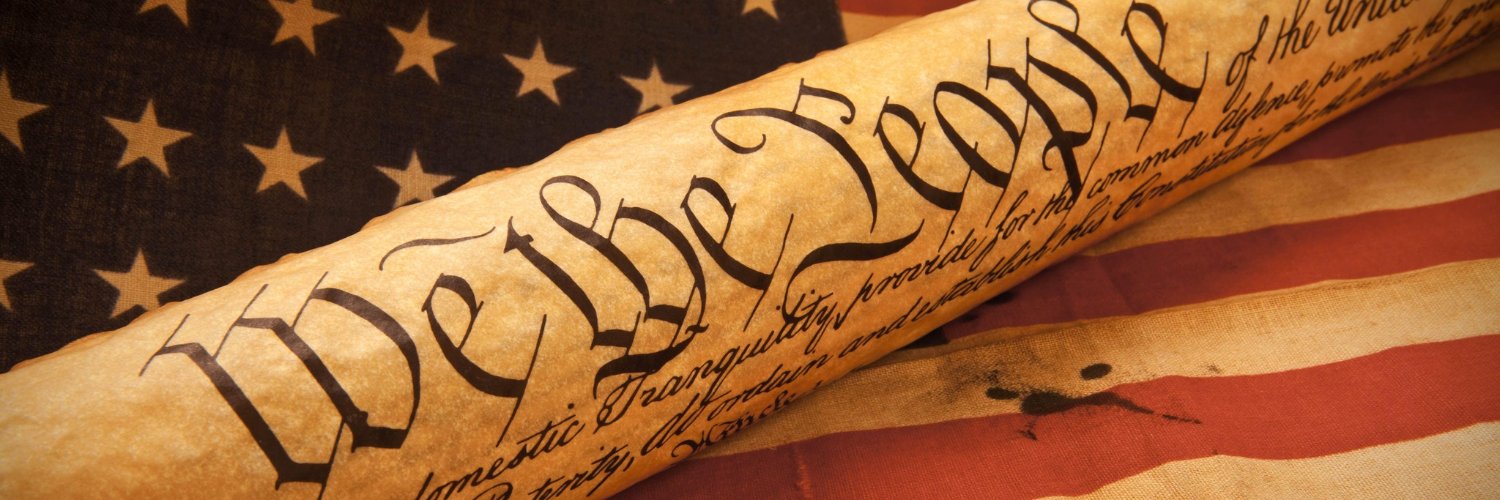 We the People of the United
domestic Tranquility, provide for the common defence, promote the gen
Posterity, do ordain and establish this Constitution for the United